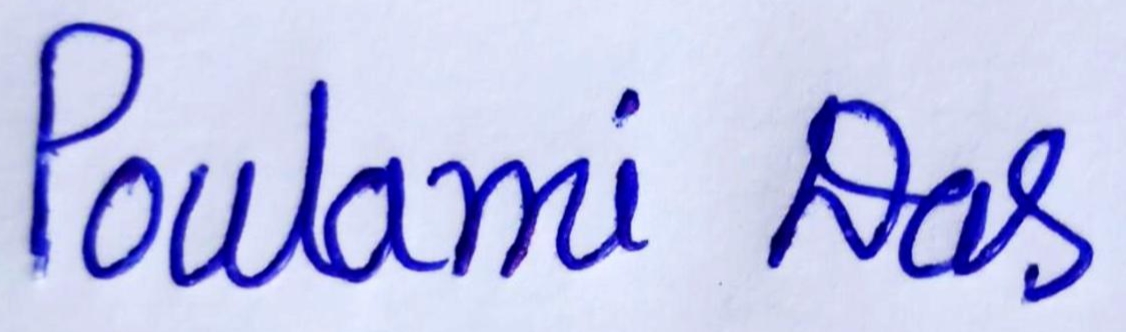 Poulami Das